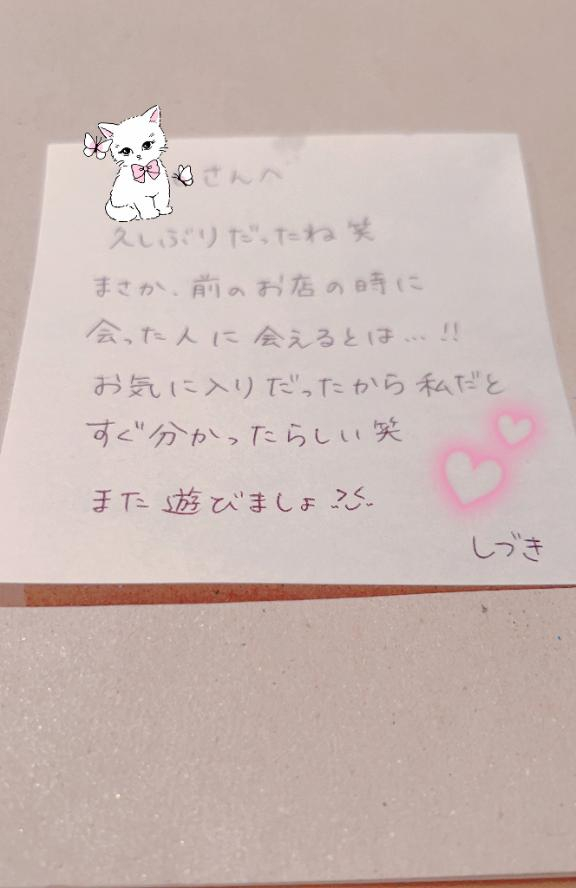 さんへ
久しぶりだったね笑
まさか、前のお店の時に
会った人に会えるとは…!!
お気に入りだったから私だと
すぐ分かったらしい笑
また遊びましょ
しづき